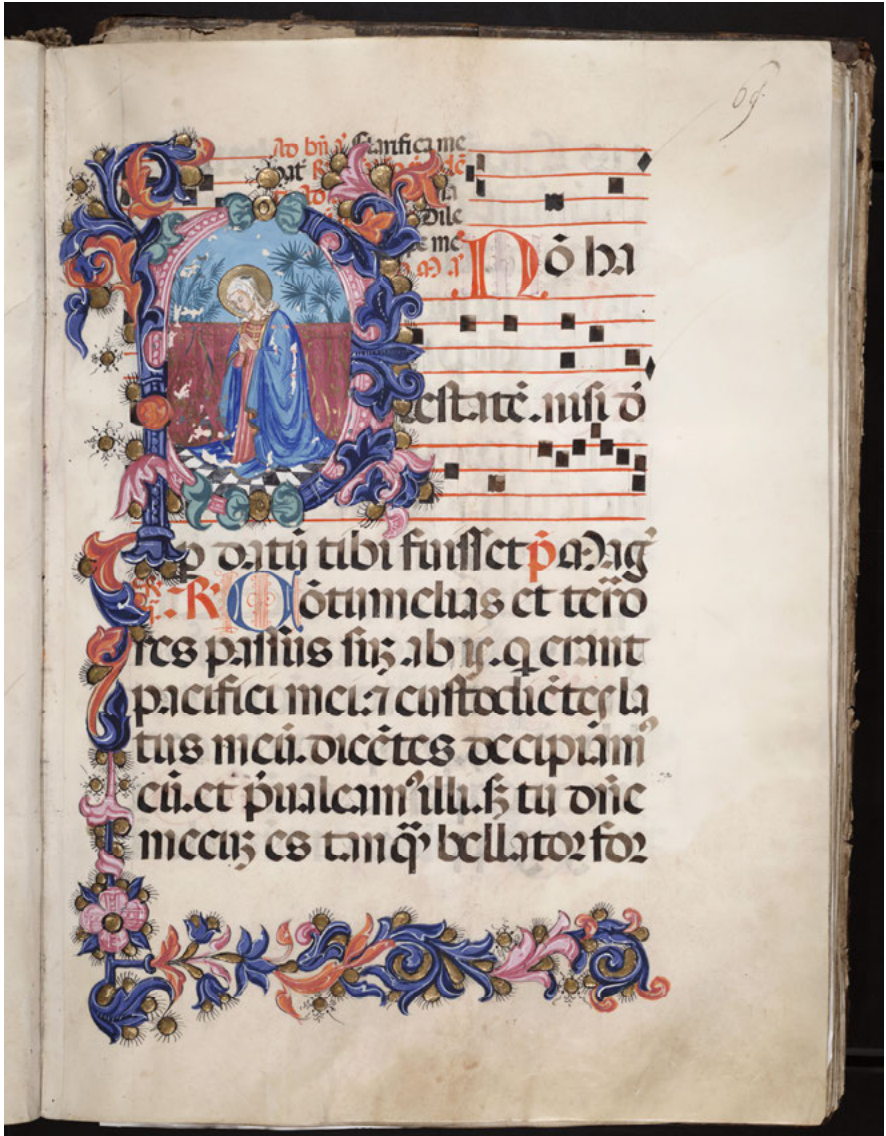 69
Ad bñ clarifica me
pat̄
Dile
me
Nō ha
testatē. nisi d̄
p datū tibi fuisset p̄ Mag̃
R Cōtumelias et terro
res passus suʒ ab iʒ. q̄ erant
pacifici mei. ⁊ custodiētes la
tus meū. dicētes decipiamʼ
eū. et p̄ualeamʼ illi. sʒ tu dñe
mecuʒ es tanq̄ʒ bellator for